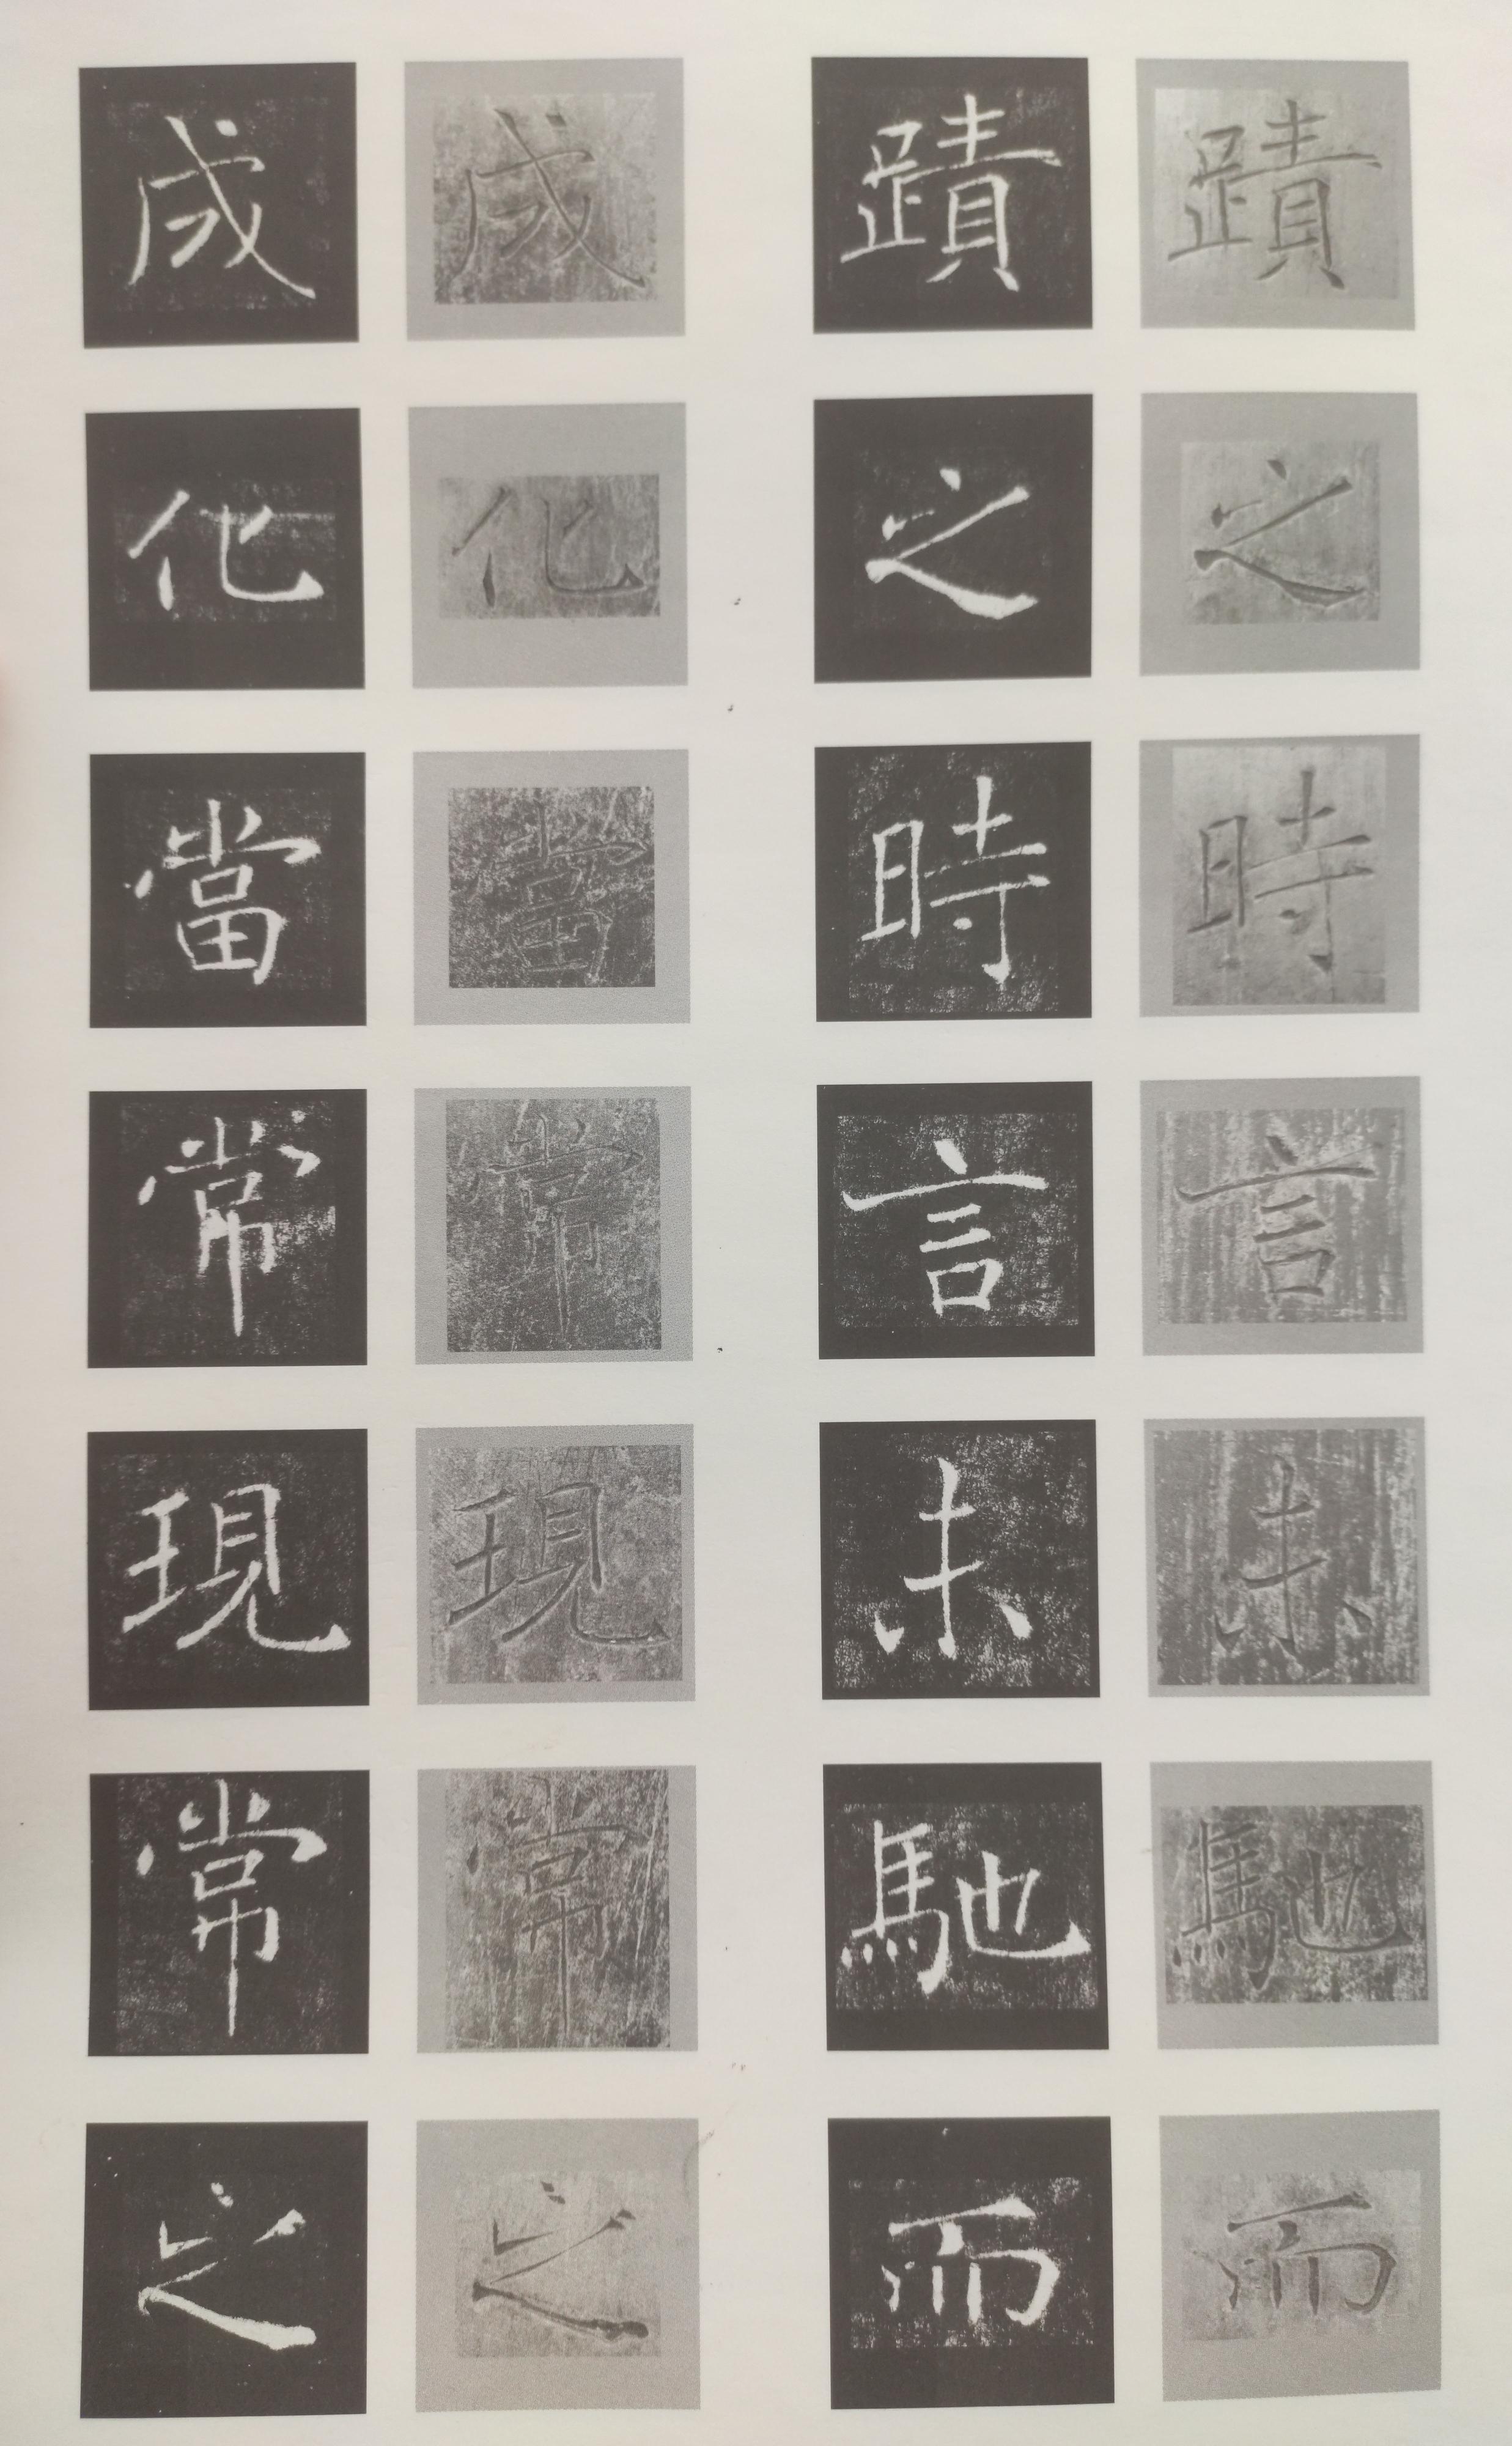 蹟之時言未馳而
蹟之時言未馳而
成化當常現常之
成化當常現常之